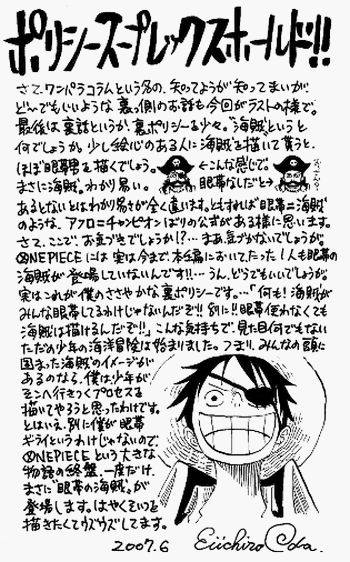 ポリシースープレックスホールド!!
さて、ワンパラコラムという名の、知ってようが知ってまいが、
どんでもいいような裏っ側のお話も今回がラストの様で。
最後は裏話というか、裏ポリシーを少々。"海賊"というと
何でしょうか。少し絵心のある人に"海賊"を描いて貰うと、
ほぼ眼帯男を描くでしょう。 ←こんな感じで。
まさに海賊。わかり易い。 眼帯なしだと→
あるとないとはわかり易さが全く違います。ともすれば"眼帯=海賊"
のような、アフロ=チャンピオンばりの公式がある様に思います。
さて、ここで、お気づきでしょうか!?…まあ、気づかないでしょうが、
ONE PIECEには実は今まで本編において、たった1人も眼帯の
海賊が登場していないんです!!…うん。どうでもいいでしょうが。
実はこれが僕のささやかな裏ポリシーです。…「何も!海賊が
みんな眼帯してるわけじゃないんだぞ!!別に!!眼帯使わなくても
海賊は描けるんだぞ!!」こんな気持ちで、見た目何でもない
ただの少年の海洋冒険は始まりました。つまり、みんなの頭に
固まった"海賊"のイメージが
あるのなら、僕は少年が
そこへ行きつくプロセスを
描いてやろうと思ったわけです。
とはいえ、別に僕が眼帯
ギライというわけじゃないので、
ONE PIECEという大きな
物語の終盤、一度だけ、
まさに"眼帯の海賊"が
登場します。はやくそいつを
描きたくてウズウズしてます。
2007.6 Eiichiro Oda.